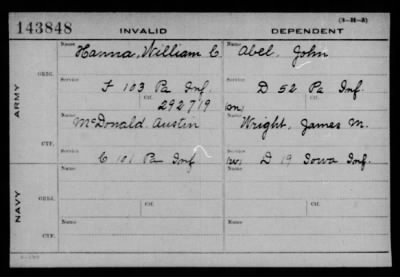 143848 INVALID DEPENDENT (3-31-3)
Name Name
Hanna, William C. Abel, John
ORIG.
Service Service
F 103 Pa Inf. D 52 Pa Inf.
Ctf. Ctf.
292719
ARMY
Name Name
McDonald Austin Wright, James M.
CTF.
Service Service
C 101 Pa Inf D 19 Iowa Inf.
NAVY
Name Name
ORIG.
Ctf. Ctf.
Name Name
CTF.